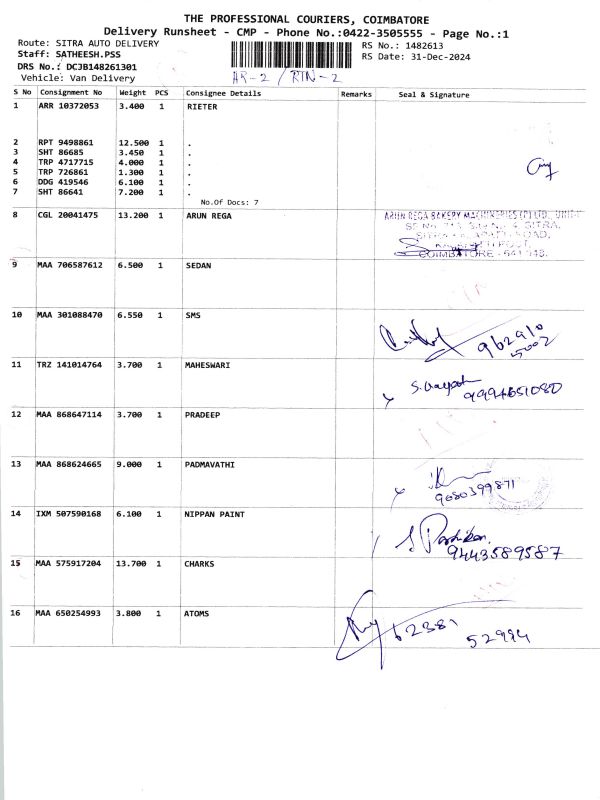 THE PROFESSIONAL COURIERS, COIMBATORE
Delivery Runsheet - CMP - Phone No.:0422-3505555 - Page No.:1
Route: SITRA AUTO DELIVERY RS No.: 1482613
Staff: SATHEESH.PSS RS Date: 31-Dec-2024
DRS No.: DCJB148261301
Vehicle: Van Delivery AR-2 / RTN-2
S No Consignment No Weight PCS Consignee Details Remarks Seal & Signature
1 ARR 10372053 3.400 1 RIETER
2 RPT 9498861 12.500 1 .
3 SHT 86685 3.450 1 .
4 TRP 4717715 4.000 1 .
5 TRP 726861 1.300 1 .
6 DDG 419546 6.100 1 .
7 SHT 86641 7.200 1 .
No.Of Docs: 7
8 CGL 20041475 13.200 1 ARUN REGA ARUN REGA BAKERY MACHINERIES (P) LTD.,
SITRA
COIMBATORE - 641 048.
9 MAA 706587612 6.500 1 SEDAN
10 MAA 301088470 6.550 1 SMS
962910
5002
11 TRZ 141014764 3.700 1 MAHESWARI
9994651080
12 MAA 868647114 3.700 1 PRADEEP
13 MAA 868624665 9.000 1 PADMAVATHI
9680399871
14 IXM 507590168 6.100 1 NIPPAN PAINT
9443589587
15 MAA 575917204 13.700 1 CHARKS
16 MAA 650254993 3.800 1 ATOMS
62381
52994